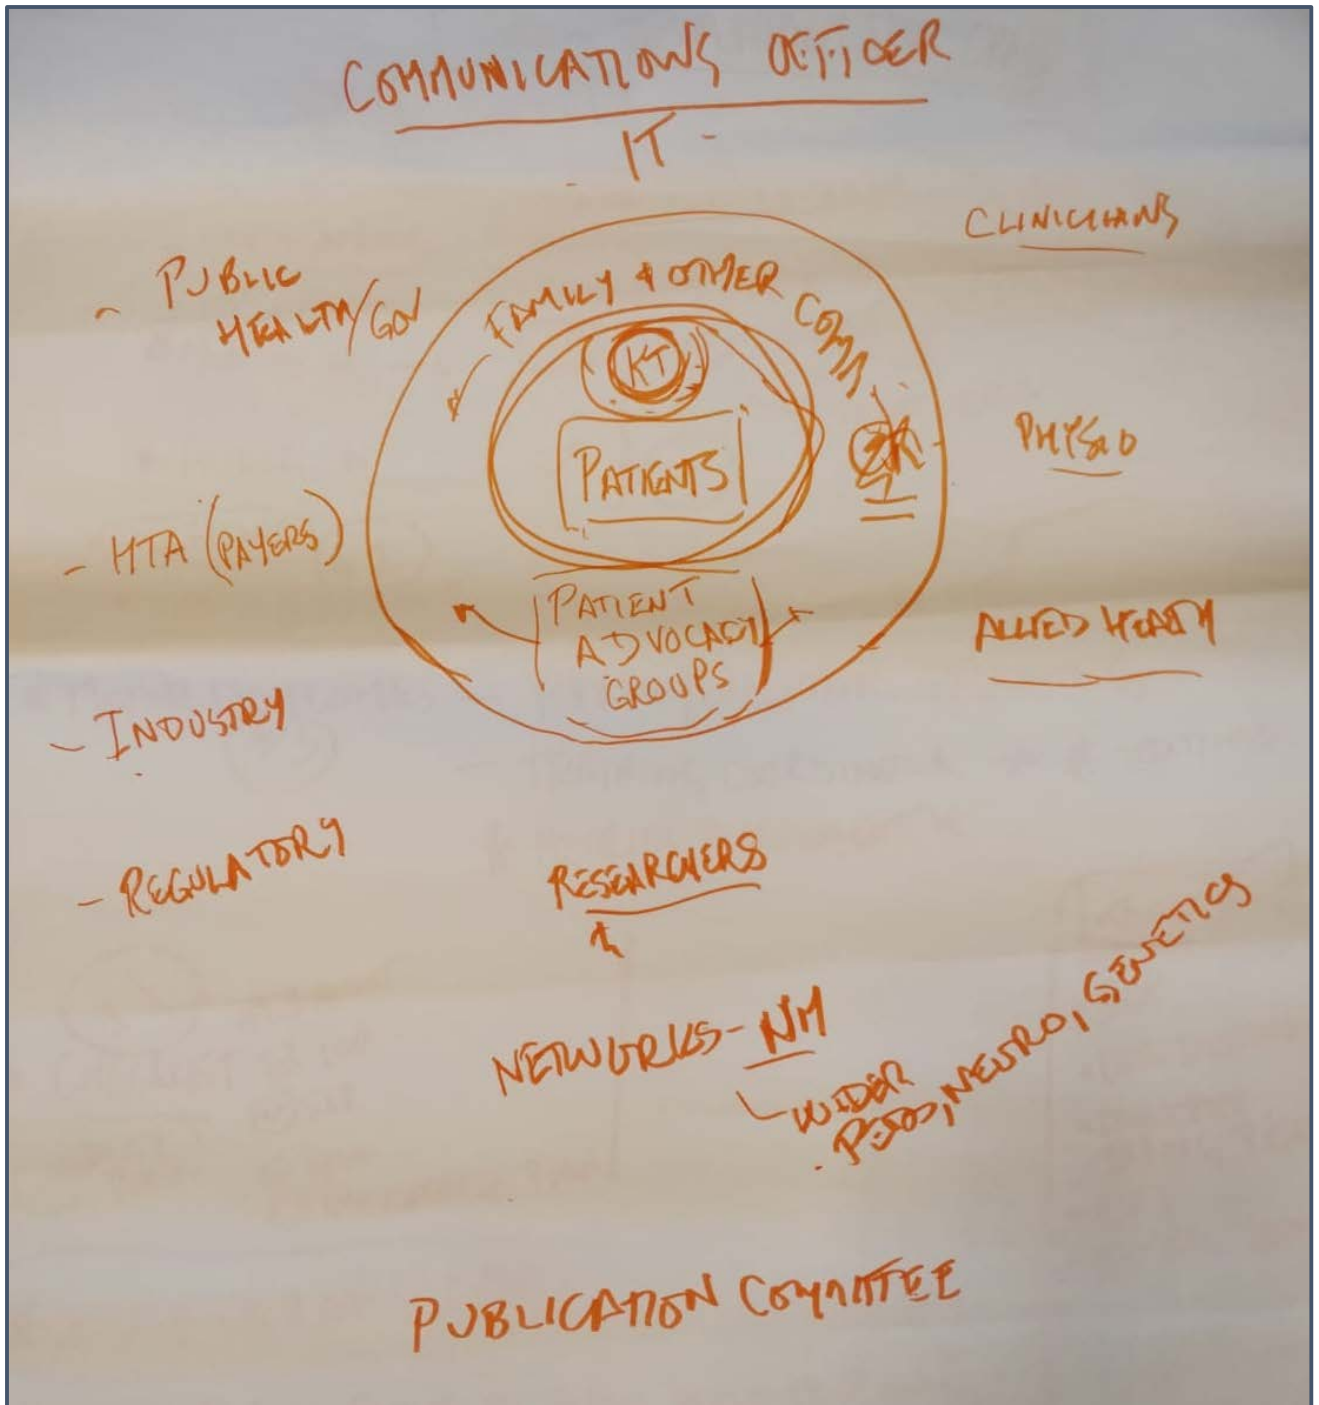 COMMUNICATIONS OFFICER
IT -
CLINICIANS
- PUBLIC
HEALTH/GOV
FAMILY & OTHER COMM
KT
PATIENTS
PHYSIO
- HTA (PAYERS)
PATIENT
ADVOCACY
GROUPS
ALLIED HEALTH
- INDUSTRY
- REGULATORY
RESEARCHERS
NETWORKS - NM
WIDER
PEDS, NEURO, GENETICS
PUBLICATION COMMITTEE